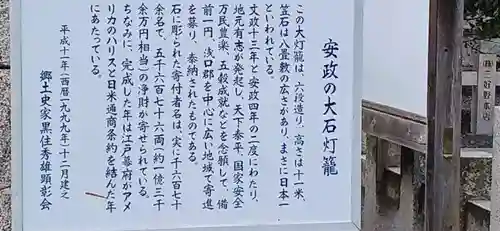 安政の大石灯籠
この大灯籠は、六段造り、高さは十一米、
笠石は八畳敷の広さがあり、まさに日本一
といわれている。
文政十三年と安政四年の二度にわたり、
地元有志が発起し、天下泰平、国家安全
万民豊楽、五穀成就などを念願して、備
前一円、浅口郡を中心に広い地域で寄進
を募り、奉納されたものである。
石に彫られた寄付者名は、実に千六百七十
余名で、五千六百七十六両（約一億三千
余万円相当）の浄財が寄せられている。
ちなみに、完成した年は江戸幕府がアメ
リカのハリスと日米通商条約を結んだ年
にあたっている。
平成十一年（西暦一九九九年）十二月建之
郷土史家黒住秀雄顕彰会